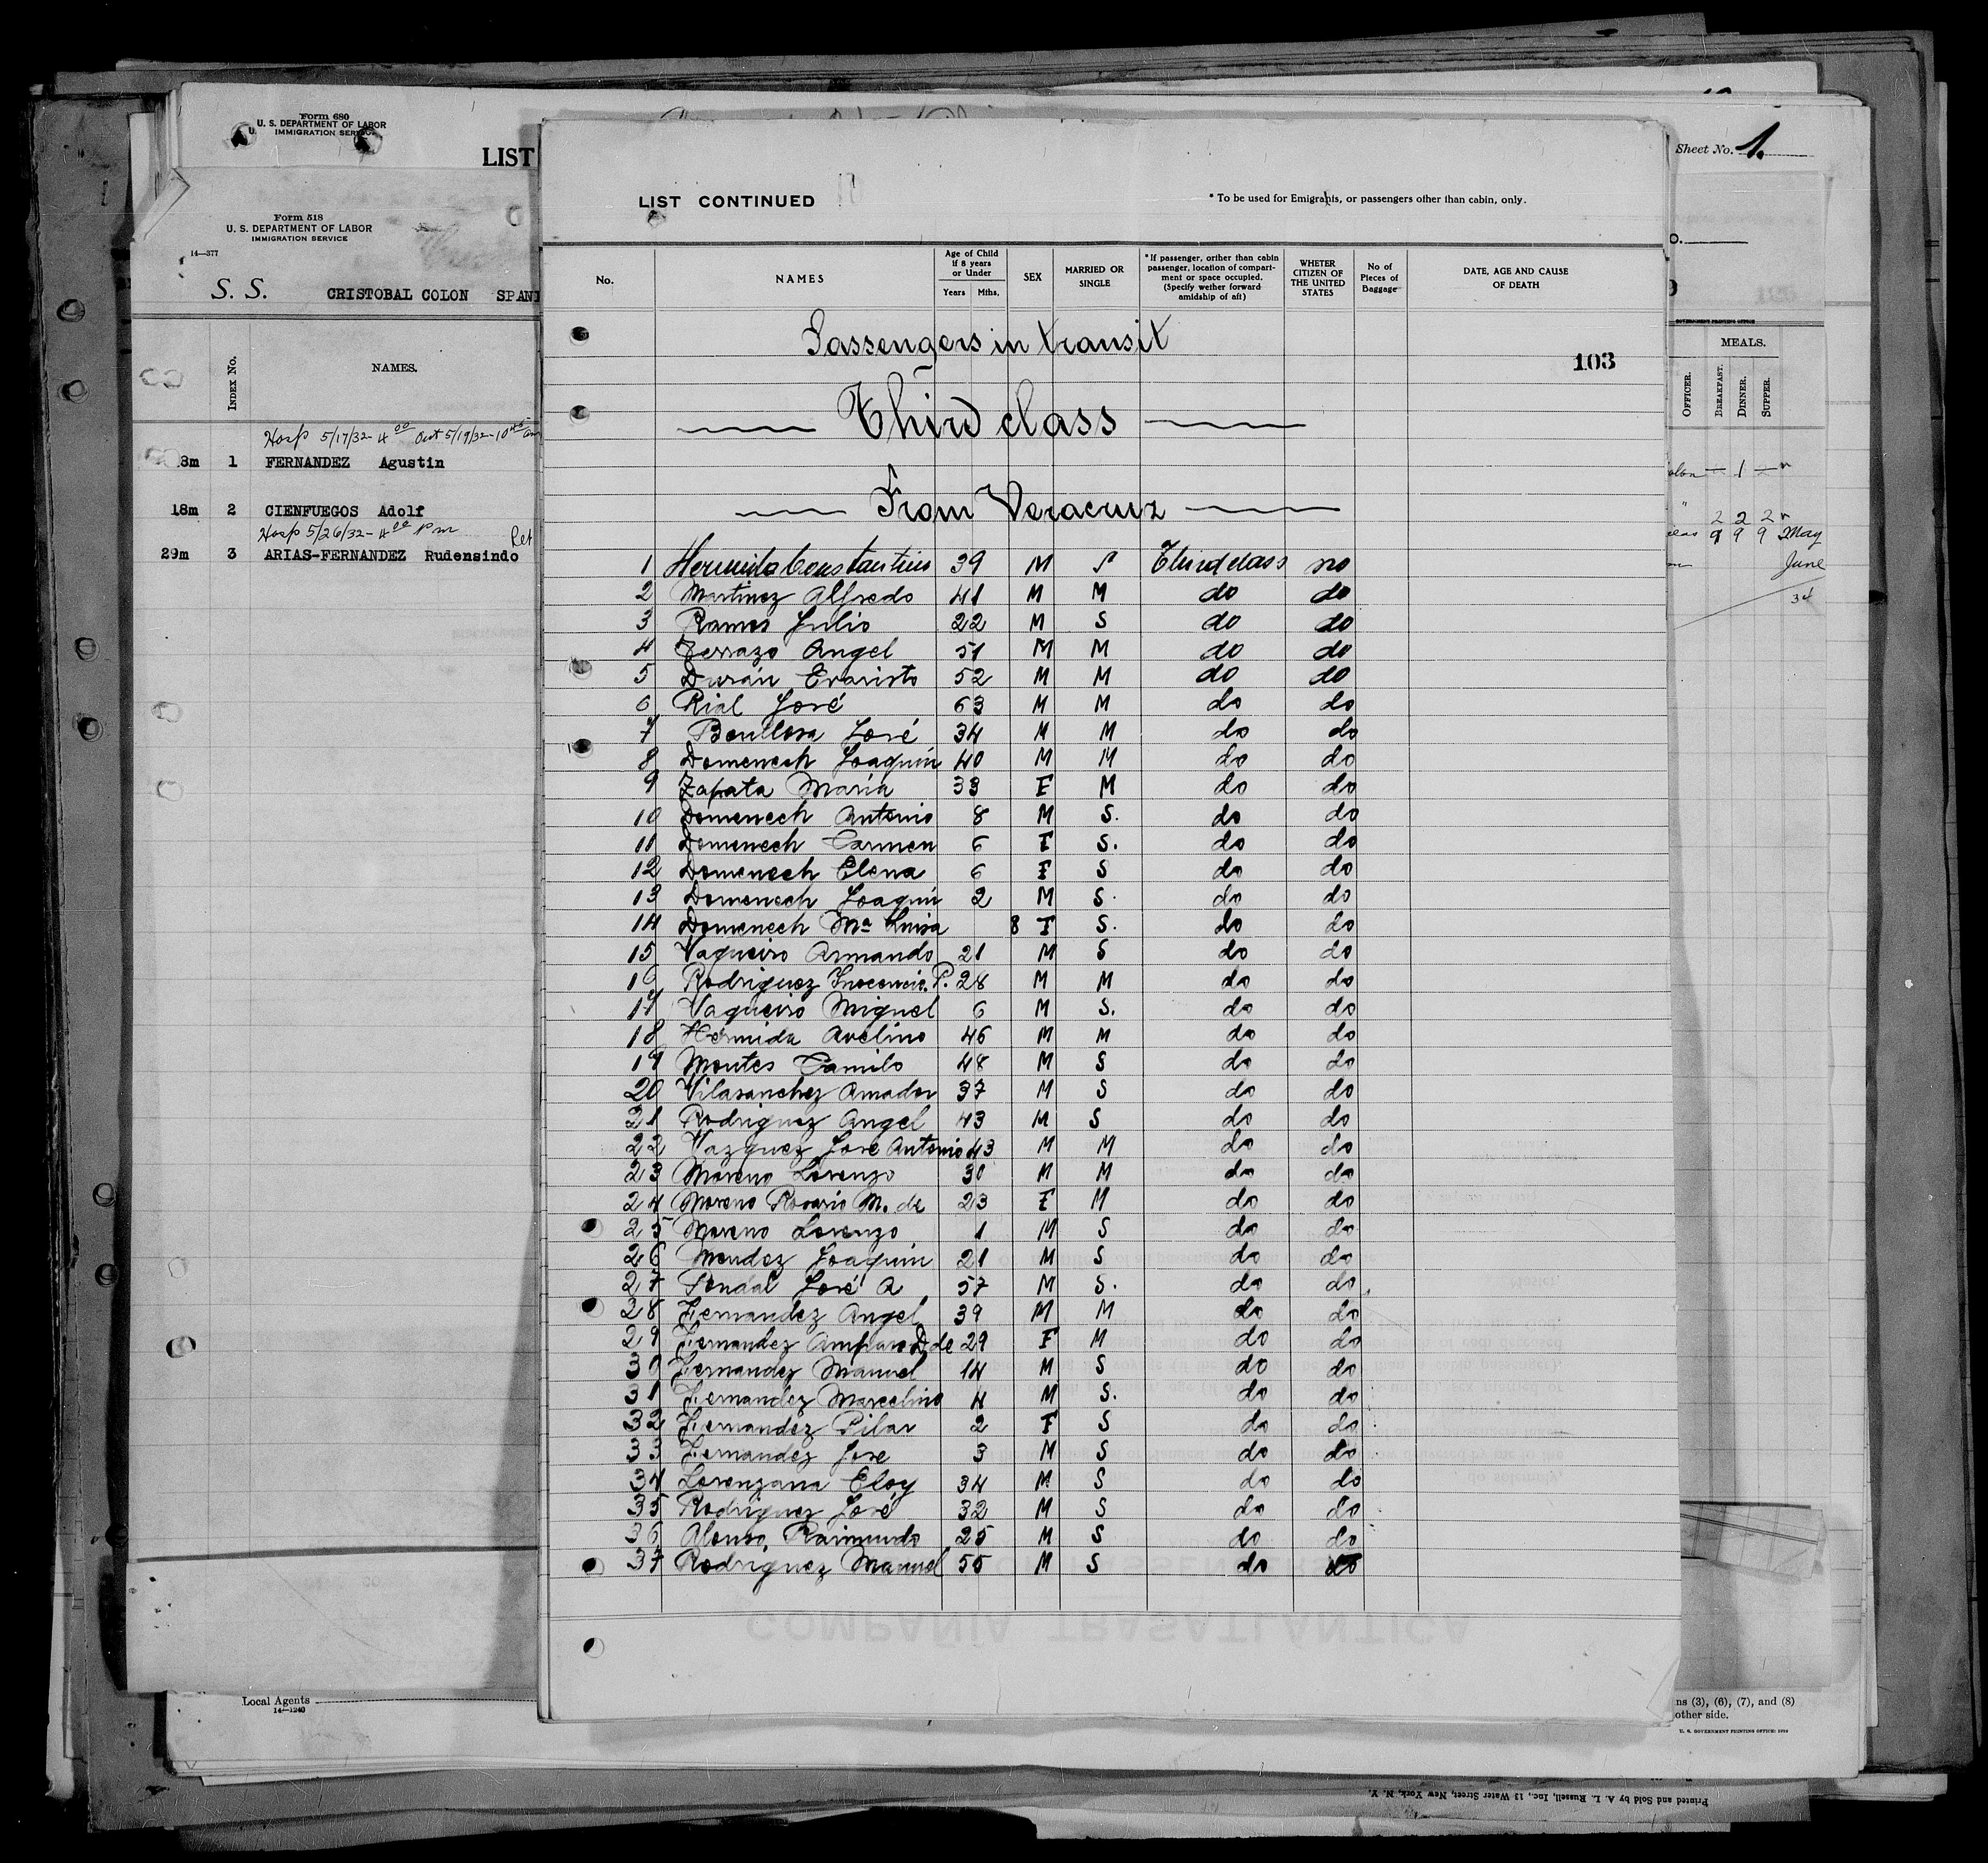 Form 680
U. S. DEPARTMENT OF LABOR
IMMIGRATION SERVICE
LIST
Form 518
U. S. DEPARTMENT OF LABOR
IMMIGRATION SERVICE
14—377
S. S. CRISTOBAL COLON SPANI
INDEX No. NAMES.
Hosp 5/17/32 - 4 00 Out 5/19/32 - 10 45 am
8m 1 FERNANDEZ Agustin
18m 2 CIENFUEGOS Adolf
Hosp 5/26/32 - 4 00 Pm
29m 3 ARIAS-FERNANDEZ Rudensindo
Local Agents
14—1240
LIST CONTINUED
* To be used for Emigrants, or passengers other than cabin, only.
No. NAMES Age of Child if 8 years or Under Years Mths. SEX MARRIED OR SINGLE * If passenger, orither than cabin passenger, location of compartment or space occupied. (Specify wether forward amidship of aft) WHETER CITIZEN OF THE UNITED STATES No of Pieces of Baggage DATE, AGE AND CAUSE OF DEATH
Passengers in transit
103
Third class
From Veracruz
1 Hermida Constantino 39 M S Third class no
2 Martinez Alfredo 41 M M do do
3 Ramos Julio 22 M S do do
4 Ferrazo Angel 51 M M do do
5 Durán Evaristo 52 M M do do
6 Rial José 63 M M do do
7 Boullosa José 34 M M do do
8 Domenech Joaquin 40 M M do do
9 Zapata Maria 33 F M do do
10 Domenech Antonio 8 M S. do do
11 Domenech Carmen 6 F S. do do
12 Domenech Elena 6 F S do do
13 Domenech Joaquin 2 M S. do do
14 Domenech Mª Luisa 8 F S. do do
15 Vaqueiro Armando 21 M S do do
16 Rodriguez Inocencio. P. 28 M M do do
17 Vaqueiro Miguel 6 M S. do do
18 Hermida Avelino 46 M M do do
19 Montes Camilo 48 M S do do
20 Vilasanchez Amador 37 M S do do
21 Rodriguez Angel 43 M S do do
22 Vazquez José Antonio 43 M M do do
23 Moreno Lorenzo 30 M M do do
24 Moreno Rosario M. de 23 F M do do
25 Moreno Lorenzo 1 M S do do
26 Mendez Joaquin 21 M S do do
27 Pendal José A 57 M S. do do
28 Fernandez Angel 39 M M do do
29 Fernandez Amparo D. de 29 F M do do
30 Fernandez Manuel 14 M S do do
31 Fernandez Marcelino 4 M S. do do
32 Fernandez Pilar 2 F S do do
33 Fernandez Jose 3 M S do do
34 Lorenzana Eloy 34 M S do do
35 Rodriguez José 32 M S do do
36 Alonso, Raimundo 25 M S do do
37 Rodriguez Manuel 55 M S do do
COMPAÑIA TRASATLANTICA
Sheet No. 1.
GOVERNMENT PRINTING OFFICE
MEALS.
OFFICER. BREAKFAST. DINNER. SUPPER.
olon — 1 —
" 2 2 2
9 9 9 May
June
34
ns (3), (6), (7), and (8)
other side.
U. S. GOVERNMENT PRINTING OFFICE: 1929
Printed and Sold by A. L. Russell, Inc., 13 Water Street, New York, N. Y.